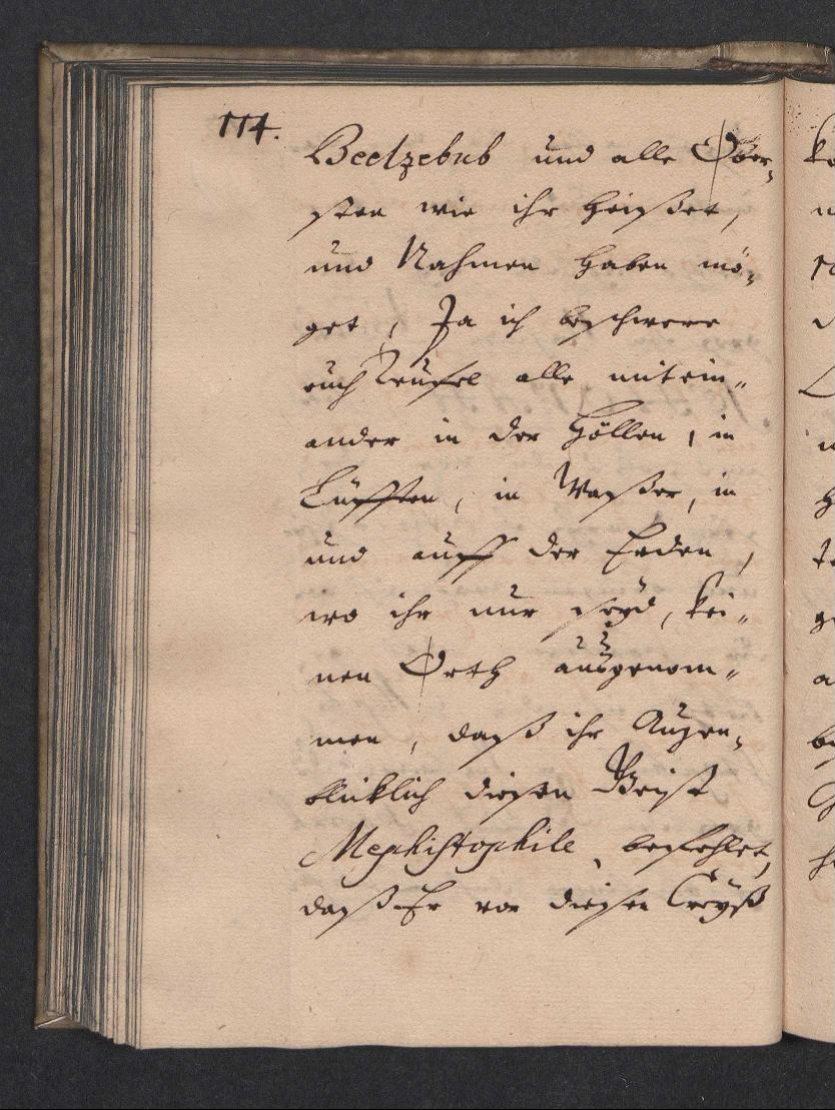 114.
Beelzebub und alle Ober-
sten wie ihr heißet,
und Nahmen haben mö-
get, Ja ich beschwere
euch Teufel alle mitein-
ander in der Höllen, in
Lüfften, in Waßer, in
und auff der Erden,
wo ihr nur seyd, kei-
nen Orth ausgenom-
men, daß ihr Augen-
blicklich diesen Geist
Mephistophile befehlet,
daß Er vor diesen Creyß